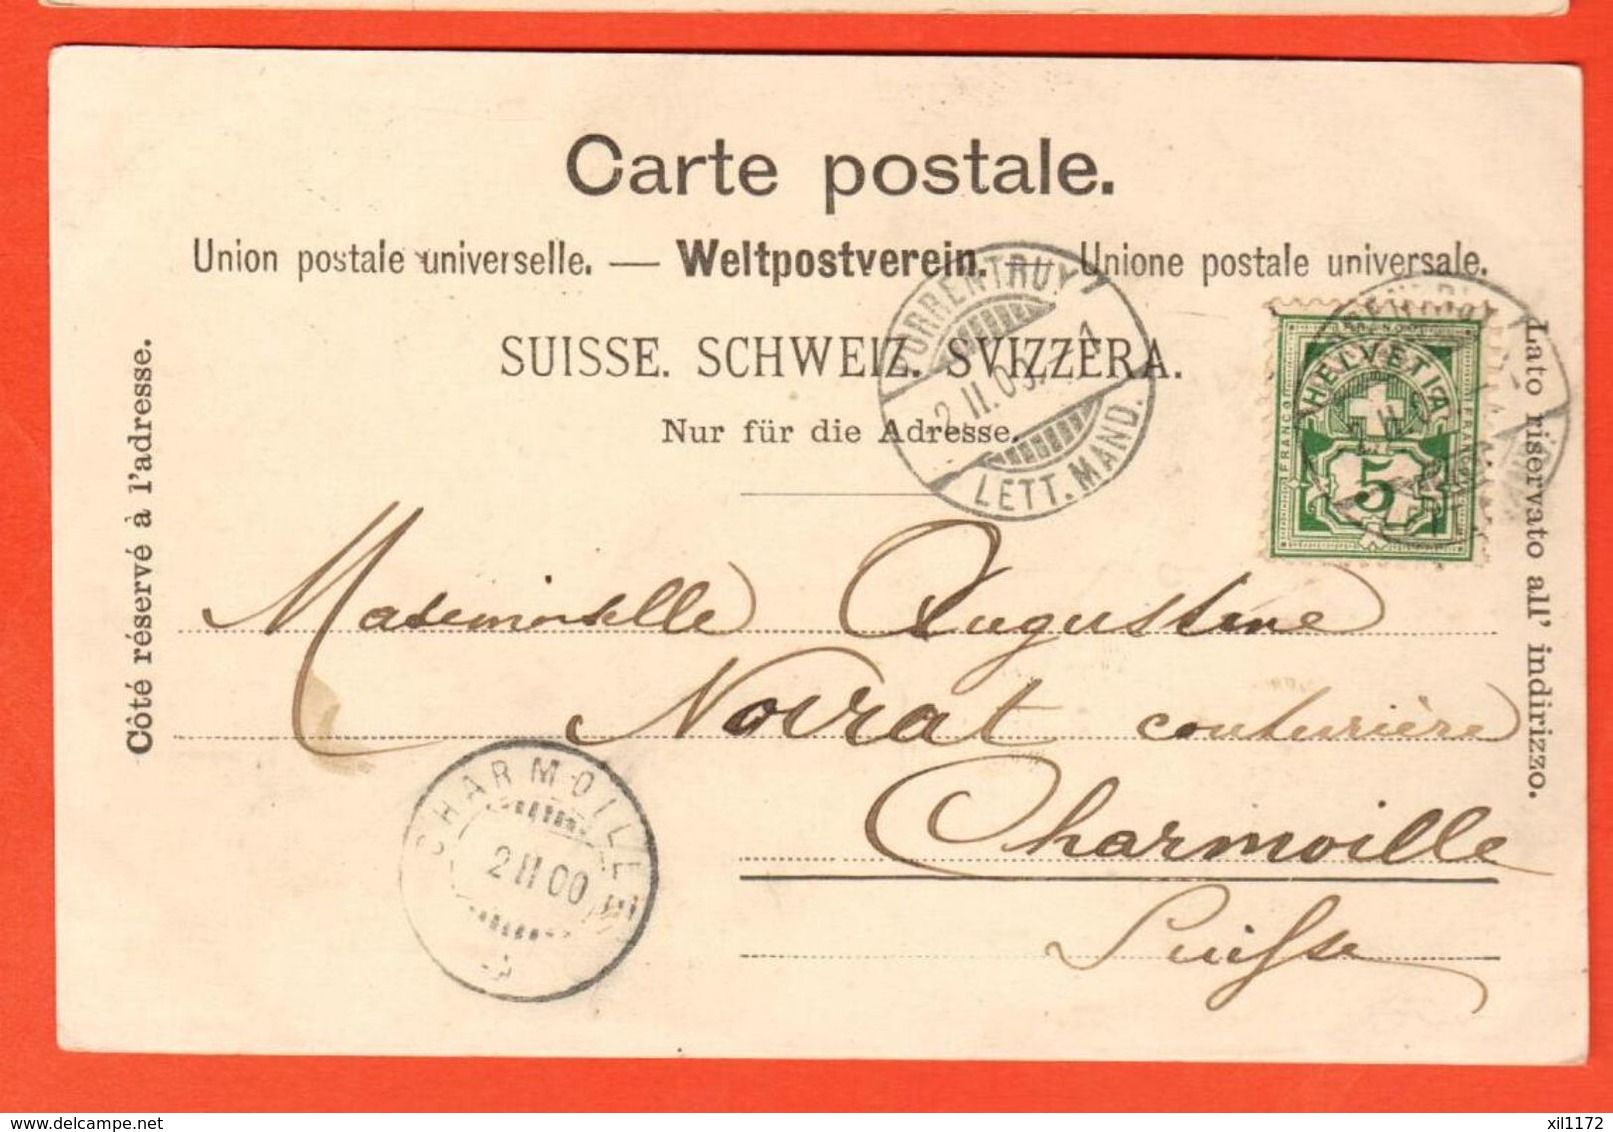 Carte postale.
Union postale universelle. — Weltpostverein. Unione postale universale.
SUISSE. SCHWEIZ. SVIZZERA.
Nur für die Adresse.
Côté réservé à l'adresse.
Lato riservato all' indirizzo.
PORRENTRUY
2.II.00.
LETT. MAND.
HELVETIA
FRANCO
FRANCO
5
Mademoiselle Augustine
Noirat couturière
Charmoille
Suisse
CHARMOILLE
2 II 00
delcampe.net
xil1172